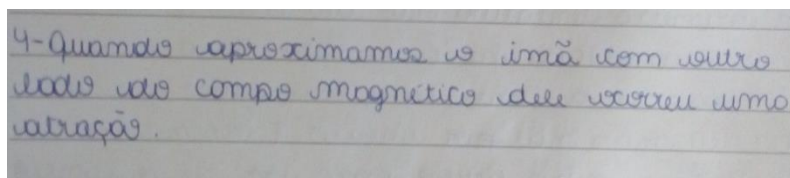 4-Quando aproximamos o imã com outro
lado do campo magnético dele ocorreu uma
atração.